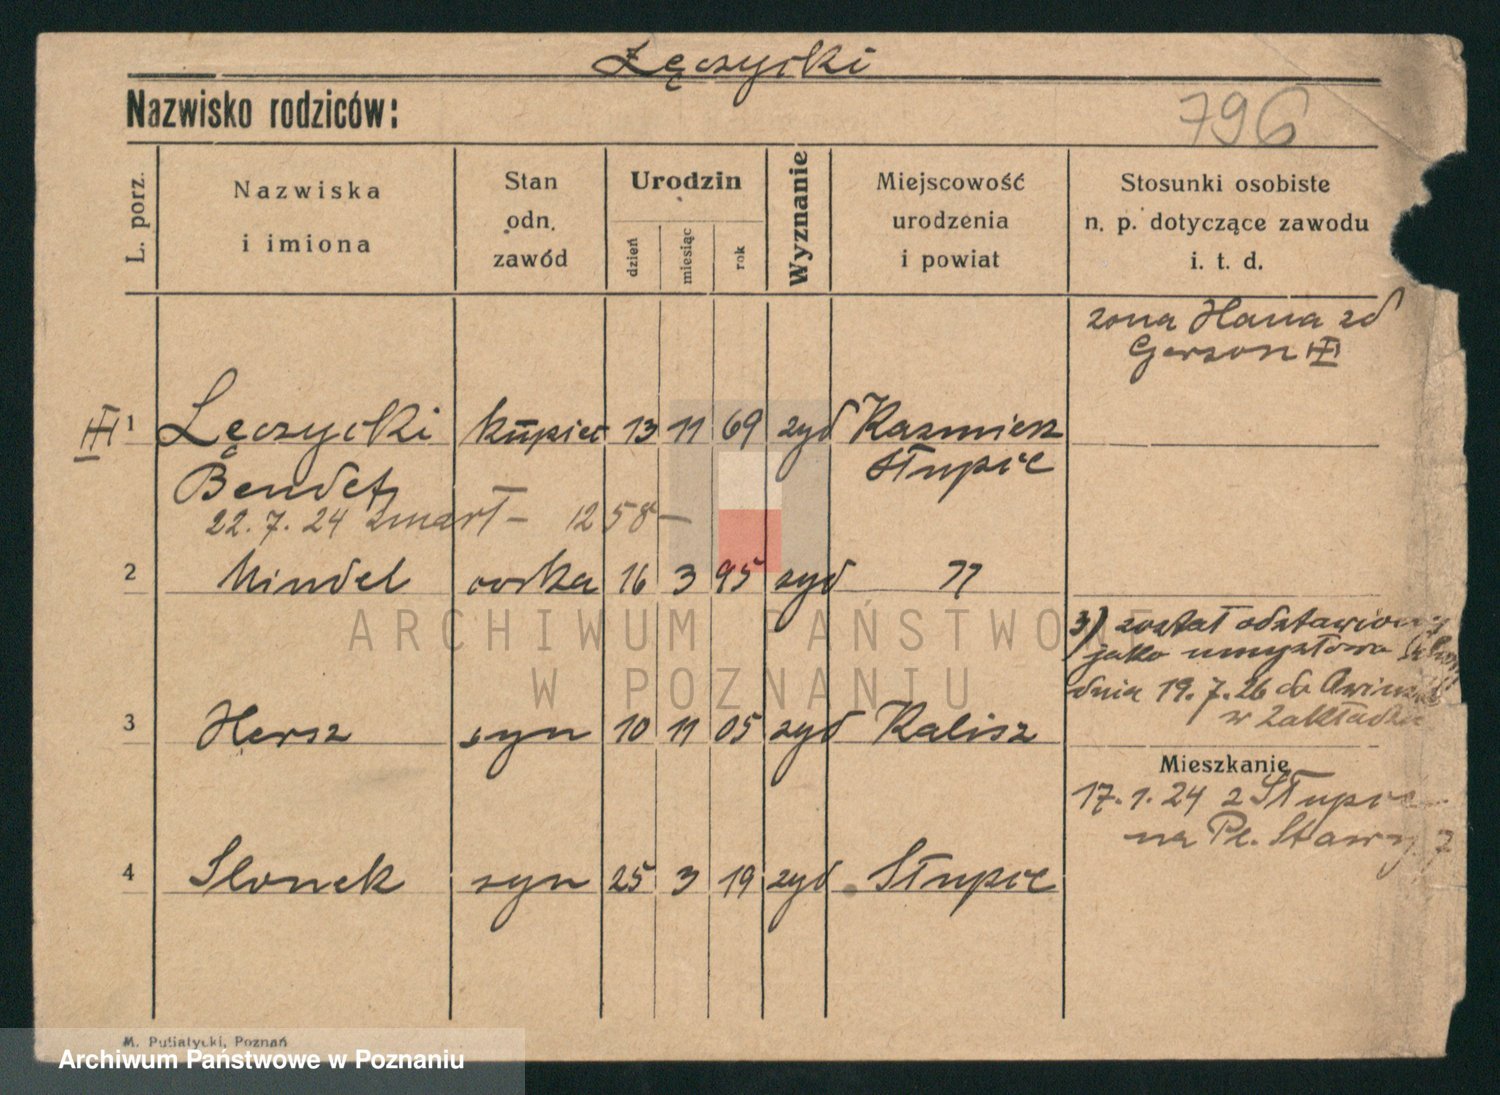 Łęczycki
Nazwisko rodziców:
796
L. porz.
Nazwiska
i imiona
Stan
odn.
zawód
Urodzin
dzień
miesiąc
rok
Wyznanie
Miejscowość
urodzenia
i powiat
Stosunki osobiste
n. p. dotyczące zawodu
i. t. d.
zona Hana zd
Gerson III
III 1 Łęczycki kupiec 13 11 69 zyd Kazmierz
Słupce
Bendet
22. 7. 24 zmarł – 1258 –
2 Mindel corka 16 3 95 zyd "
3) został odstawiony
jako umysłowo
dnia 19. 7. 26 do
w zakładzie
3 Hersz syn 10 11 05 zyd Kalisz
Mieszkanie
17. 1. 24 z Słupce
na Pl. Stawny 7
4 Slonek syn 25 3 19 zyd Słupce
M. Putiatycki, Poznań
ARCHIWUM PAŃSTWOWE
W POZNANIU
Archiwum Państwowe w Poznaniu